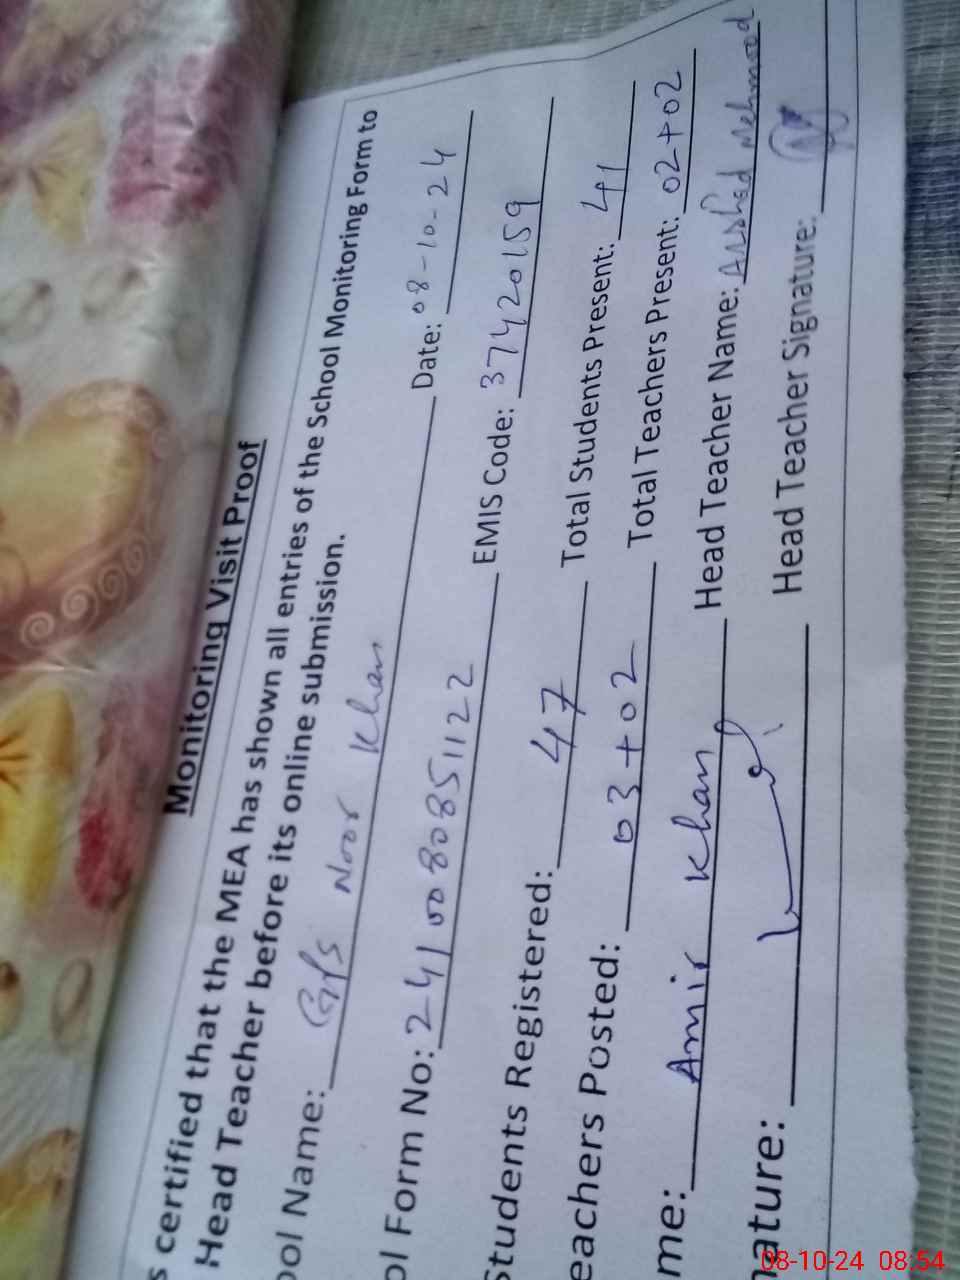 Monitoring Visit Proof
s certified that the MEA has shown all entries of the School Monitoring Form to
Head Teacher before its online submission.
ool Name: GPS Noor Khan Date: 08-10-24
ol Form No: 2410080851122 EMIS Code: 37420159
Students Registered: 47 Total Students Present: 41
eachers Posted: 03+02 Total Teachers Present: 02+02
me: Amir Khan Head Teacher Name: Arshad Mehmood
nature: Head Teacher Signature:
08-10-24 08:54